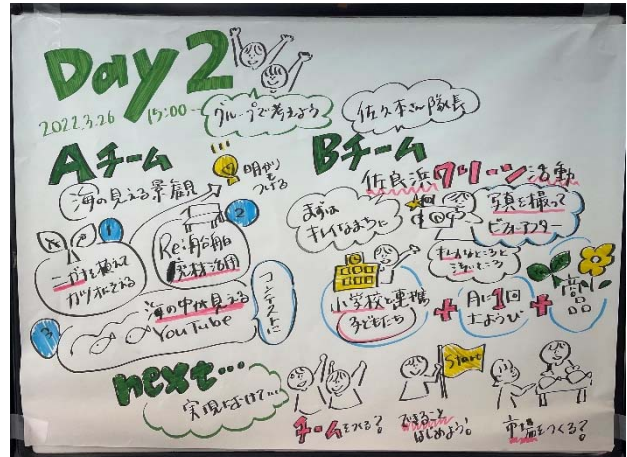 Day 2
2022.3.26 15:00~
グループで考えよう
佐久本さん隊長
Aチーム
海の見える景観
明かりをつける
1
2
Re:船舶
廃材活用
3
海の中が見える
YouTube
コンテストに
Bチーム
佐良浜クリーン活動
まずは
キレイなまちに
写真を撮って
ビフォーアフター
小学校と連携
子どもたち
+
月に1回
土ようび
+
next…
実現に向けて…
チームをつくる?
Start
できること
はじめよう!
市場をつくる?